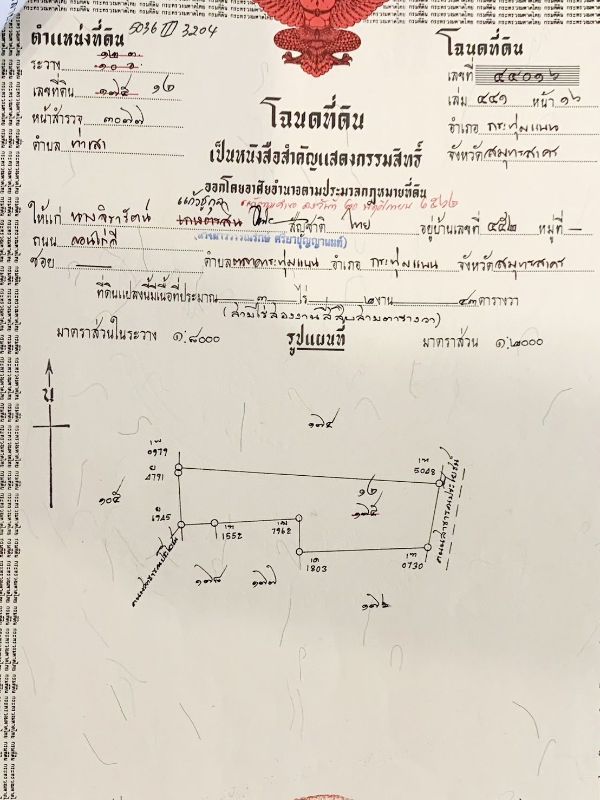 ตำแหน่งที่ดิน 5036 III 3204
ระวาง
เลขที่ดิน ๑๗๕ ๑๒
หน้าสำรวจ ๓๐๗๗
ตำบล ท่าเสา
โฉนดที่ดิน
เลขที่ ๔๔๐๑๖
เล่ม ๔๔๑ หน้า ๑๖
อำเภอ กระทุ่มแบน
จังหวัด สมุทรสาคร
โฉนดที่ดิน
เป็นหนังสือสำคัญแสดงกรรมสิทธิ์
ออกโดยอาศัยอำนาจตามประมวลกฎหมายที่ดิน
ให้แก่ นางจิรารัตน์ สัญชาติ ไทย อยู่บ้านเลขที่ ๔๕๒ หมู่ที่ –
ถนน ดอนไก่ดี
ซอย — ตำบล ตลาดกระทุ่มแบน อำเภอ กระทุ่มแบน จังหวัด สมุทรสาคร
ที่ดินแปลงนี้มีเนื้อที่ประมาณ ๓ ไร่ ๒ งาน ๔๓ ตารางวา
(สามไร่สองงานสี่สิบสามตารางวา)
มาตราส่วนในระวาง ๑:๘๐๐๐ รูปแผนที่ มาตราส่วน ๑:๒๐๐๐
น
๑๗๔
0979
4791
5048
๑๐๕
๑๒
๑๗๕
1552
7962
1803
0730
๑๗๘
๑๗๗
๑๗๖
ถนนสาธารณประโยชน์